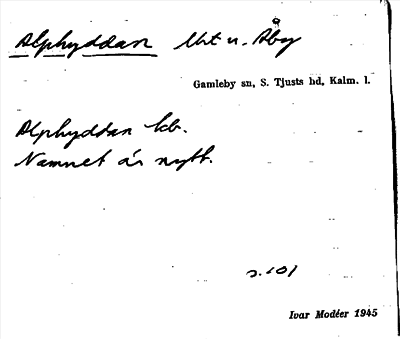 Alphyddan lht u. Åby
Gamleby sn, S. Tjusts hd, Kalm. l.
Alphyddan kb.
Namnet är nytt.
s. 101
Ivar Modéer 1945